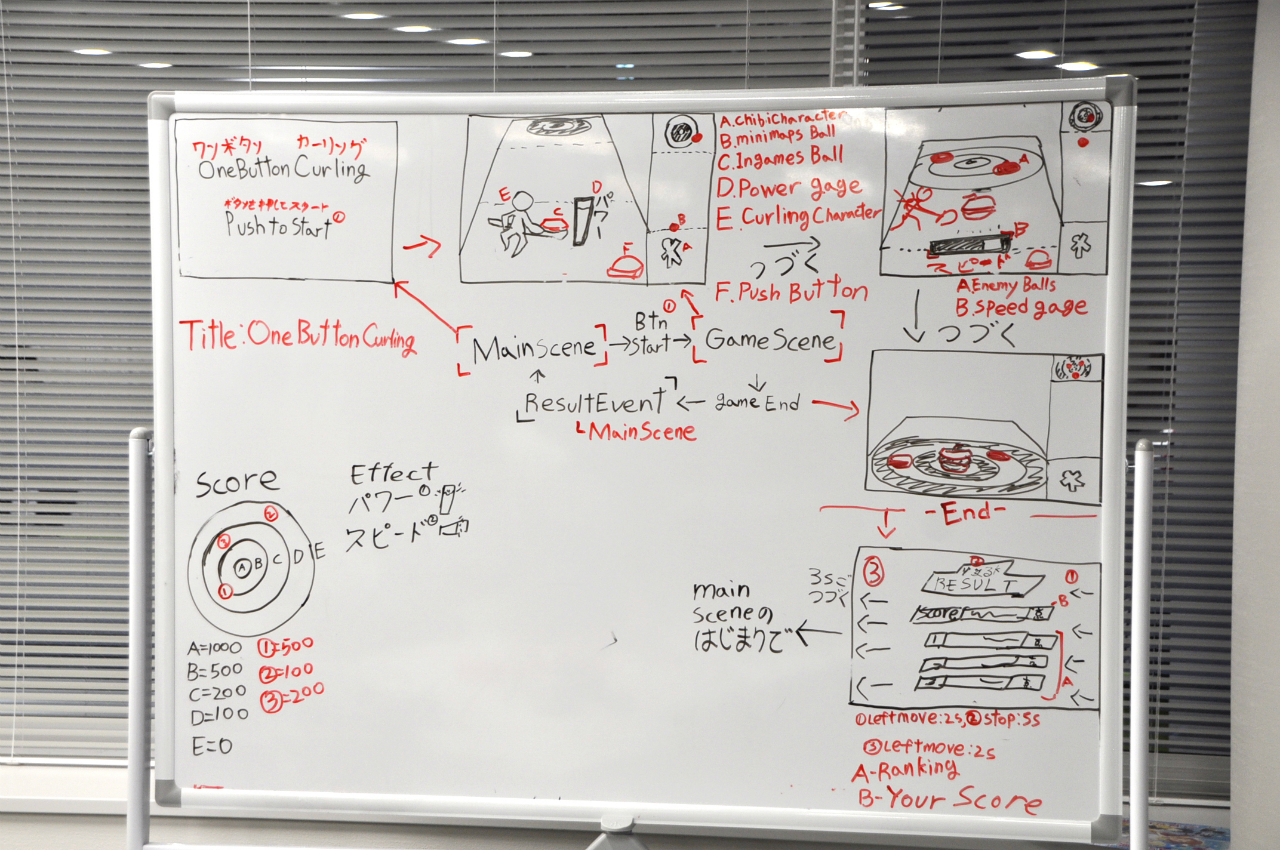 ワンボタン カーリング
OneButton Curling
ボタンを押してスタート
Push to Start ①
E
C
D
パワー
B
A
F
A.ChibiCharacter
B.minimaps Ball
C.Ingames Ball
D.Power gage
E.Curling Character
つづく
F.Push Button
A
B
スピード
A.Enemy Balls
B.Speed gage
つづく
Title:OneButton Curling
MainScene
Btn ①
Start
GameScene
ResultEvent
game End
MainScene
-End-
Score
A B C D E
① ② ③
A=1000 ①=500
B=500 ②=100
C=200 ③=200
D=100
E=0
Effect
パワー①
スピード②
main
sceneの
はじまりで
3sご
つづく
③
②
RESULT
①
Score
B
1
2
3
A
①Leftmove:2s,②stop:5s
③Leftmove:2s
A-Ranking
B-Your Score